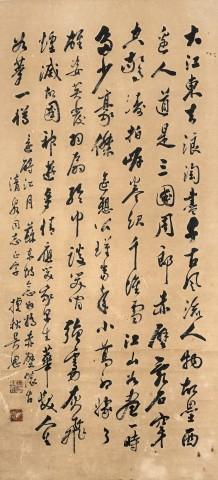 大江東去浪淘盡千古風流人物故壘西
邊人道是三國周郎赤壁亂石穿
空驚濤拍岸卷起千堆雪江山如畫一時
多少豪傑遙想公瑾當年小喬初嫁了
雄姿英發羽扇綸巾談笑間強虜灰飛
煙滅故國神遊多情應笑我早生華髮人生
如夢一樽還酹江月蘇東坡念奴嬌赤壁懷古
同志正字